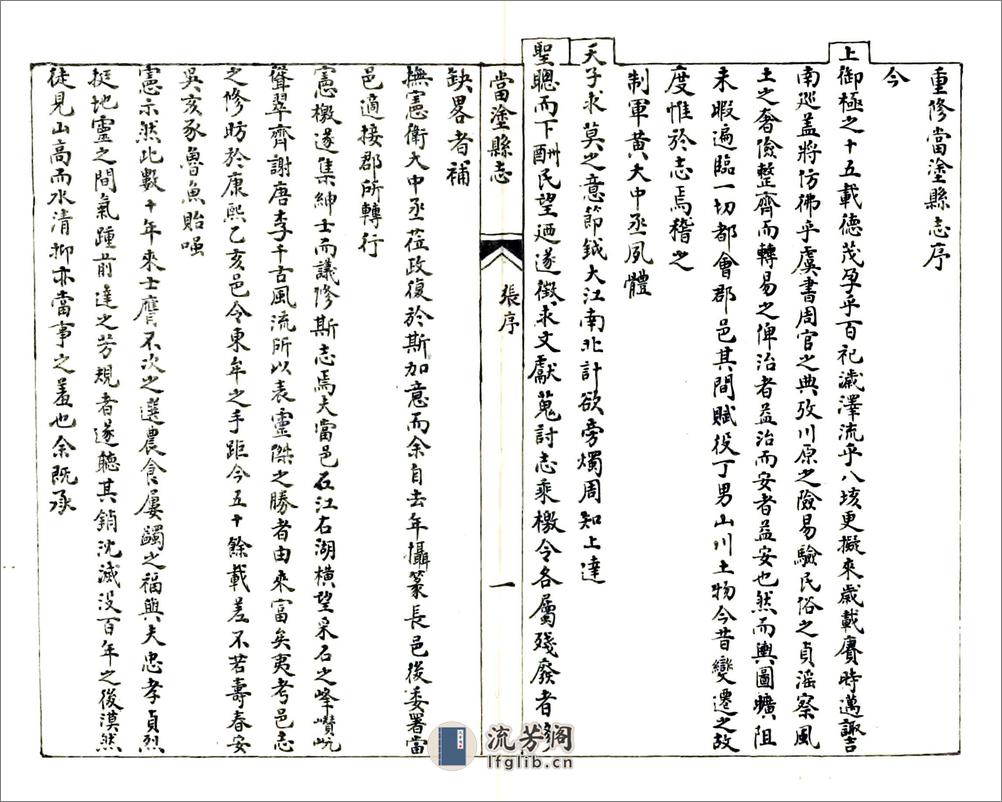 重修當塗縣志序
今
上御極之十五載德茂孕乎百祀瀛澤流乎八垓更擬來歲載賡時邁諏吉
南巡盖將仿彿乎虞書周官之典攷川原之險易驗民俗之貞滛察風
土之奢儉整齊而轉易之俾治者益治而安者益安也然而輿圖曠阻
未暇遍臨一切都會郡邑其間賦役丁男山川土物今昔變遷之故
度惟於志焉稽之
制軍黄大中丞夙體
天子求莫之意節鉞大江南北計欲旁燭周知上達
聖聰而下酬民望廼遂徵求文獻蒐討志乘檄令各屬殘廢者
當塗縣志
張序
一
缺畧者補
撫憲衛大中丞莅政復於斯加意而余自去年攝篆長邑後委署當
邑適接郡所轉行
憲檄遂集紳士而議修斯志焉夫當邑石江右湖橫望采石之峰巑岏
聳翠齊謝唐李千古風流所以表靈傑之勝者由來富矣夷考邑志
之修昉於康熙乙亥邑令東牟之手距今五十餘載差不若壽春安
吳亥豕魯魚貽嗤
憲示然此數十年來士膺不次之選農食屢蠲之福與夫忠孝貞烈
挺地靈之間氣踵前達之芳規者遂聽其銷沈滅没百年之後漠然
徒見山高而水清抑亦當事之羞也余既承
流芳阁
lfglib.cn